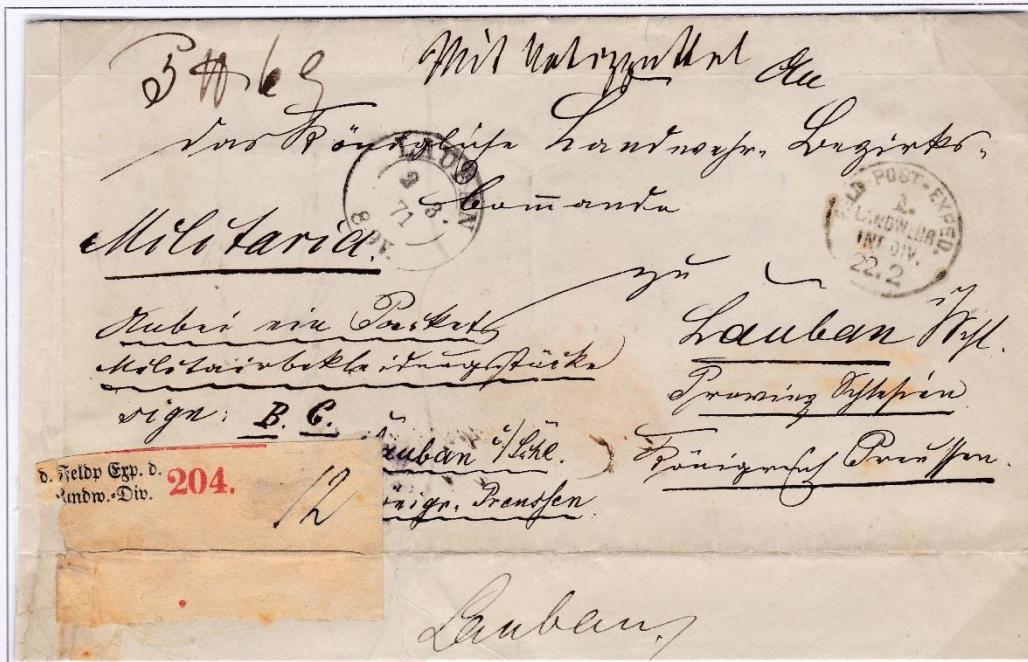 5 ℔ 6 g
Mit Notizzettel An
das Königliche Landwehr-Bezirks-
Commando
LAUBAN
2 3.
71
FELD-POST-EXPED.
LANDWEHR
INF. DIV.
22.2
Militaria.
zu
Anbei ein Packet
Militairbekleidungsstücke
sign: B. C.
Lauban i/Schl.
Königr. Preussen
Lauban i/Schl.
Provinz Schlesien
Königreich Preussen.
d. Feldp Exp. d.
Landw.-Div. 204.
12
Lauban